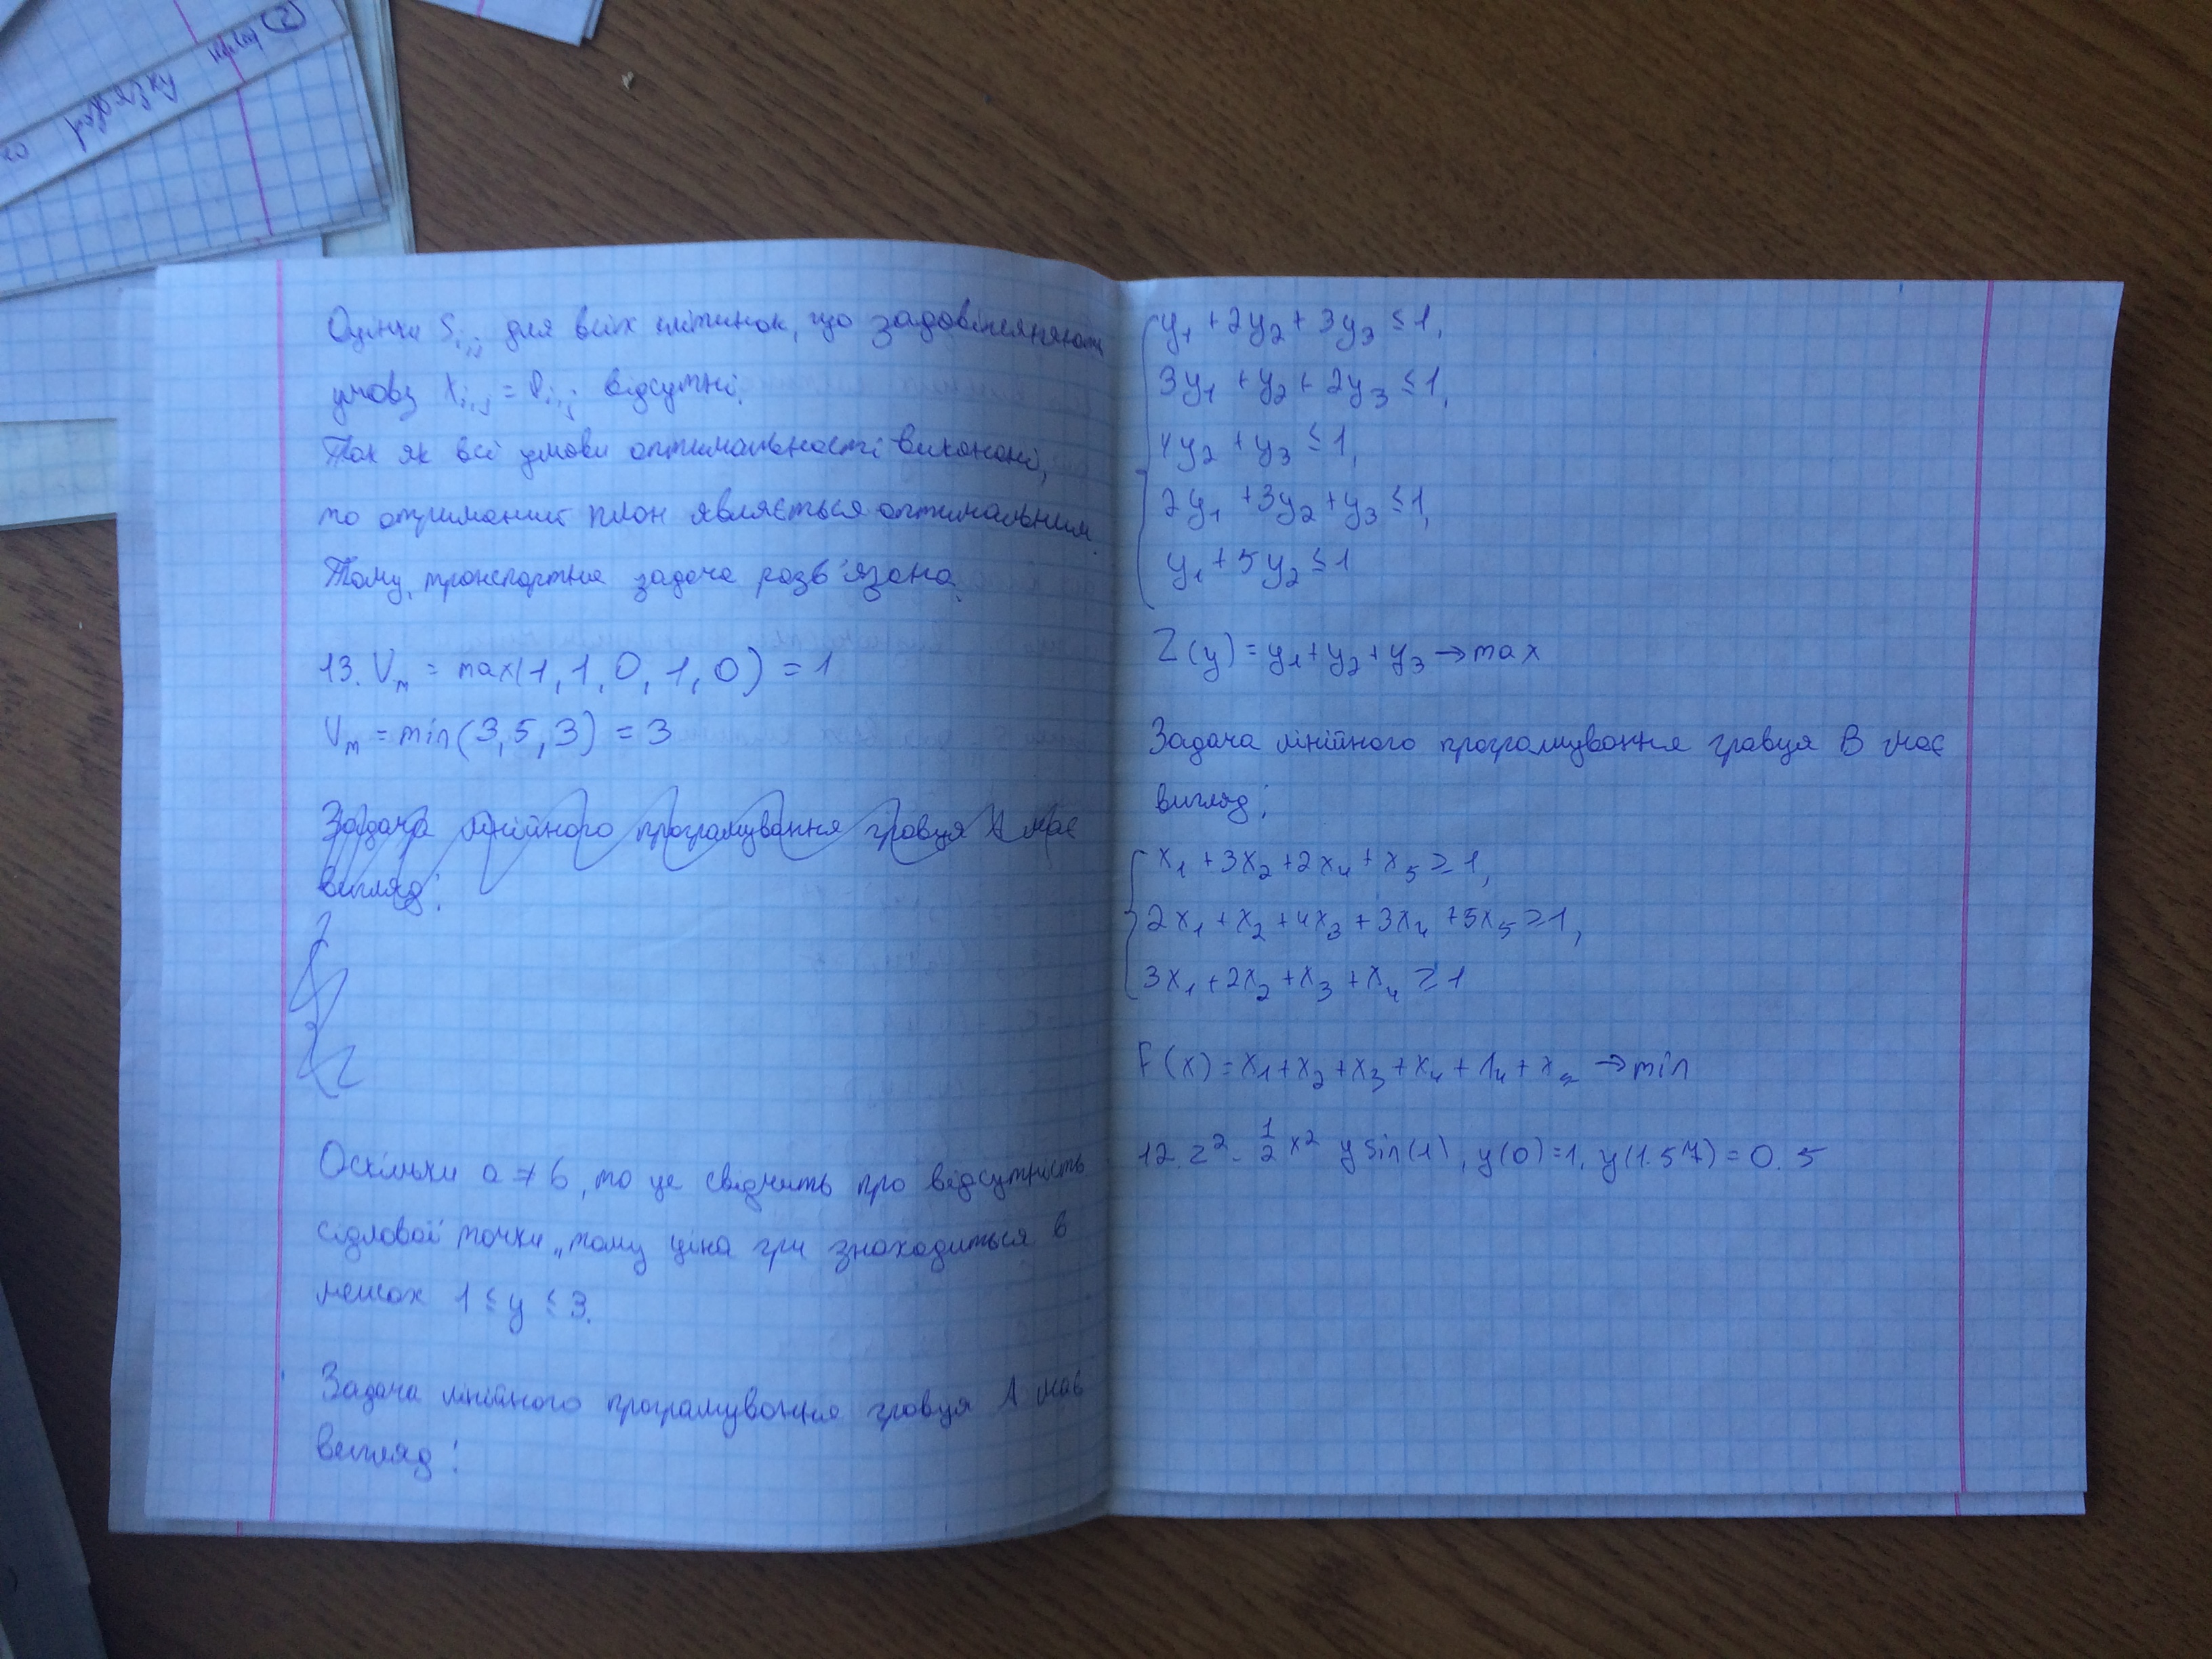 Оцінки Si,j для всіх клітинок, що задовільняють
умову Xi,j = Pi,j відсутні.
Так як всі умови оптимальності виконані,
то отриманий план являється оптимальним.
Тому, транспортна задача розв'язана.
13. Vm = max(1, 1, 0, 1, 0) = 1
Vm = min(3, 5, 3) = 3
Задача лінійного програмування гравця А має
вигляд:
Оскільки a ≠ b, то це свідчить про відсутність
сідлової точки, тому ціна гри знаходиться в
межах 1 ≤ y ≤ 3.
Задача лінійного програмування гравця А має
вигляд:
y1 + 2y2 + 3y3 ≤ 1,
3y1 + y2 + 2y3 ≤ 1,
4y2 + y3 ≤ 1,
2y1 + 3y2 + y3 ≤ 1,
y1 + 5y2 ≤ 1
Z(y) = y1 + y2 + y3 → max
Задача лінійного програмування гравця В має
вигляд:
x1 + 3x2 + 2x4 + x5 ≥ 1,
2x1 + x2 + 4x3 + 3x4 + 5x5 ≥ 1,
3x1 + 2x2 + x3 + x4 ≥ 1
F(x) = x1 + x2 + x3 + x4 + 14 + x5 → min
12. z² - 1/2 x² y sin(1), y(0) = 1, y(1.57) = 0.5